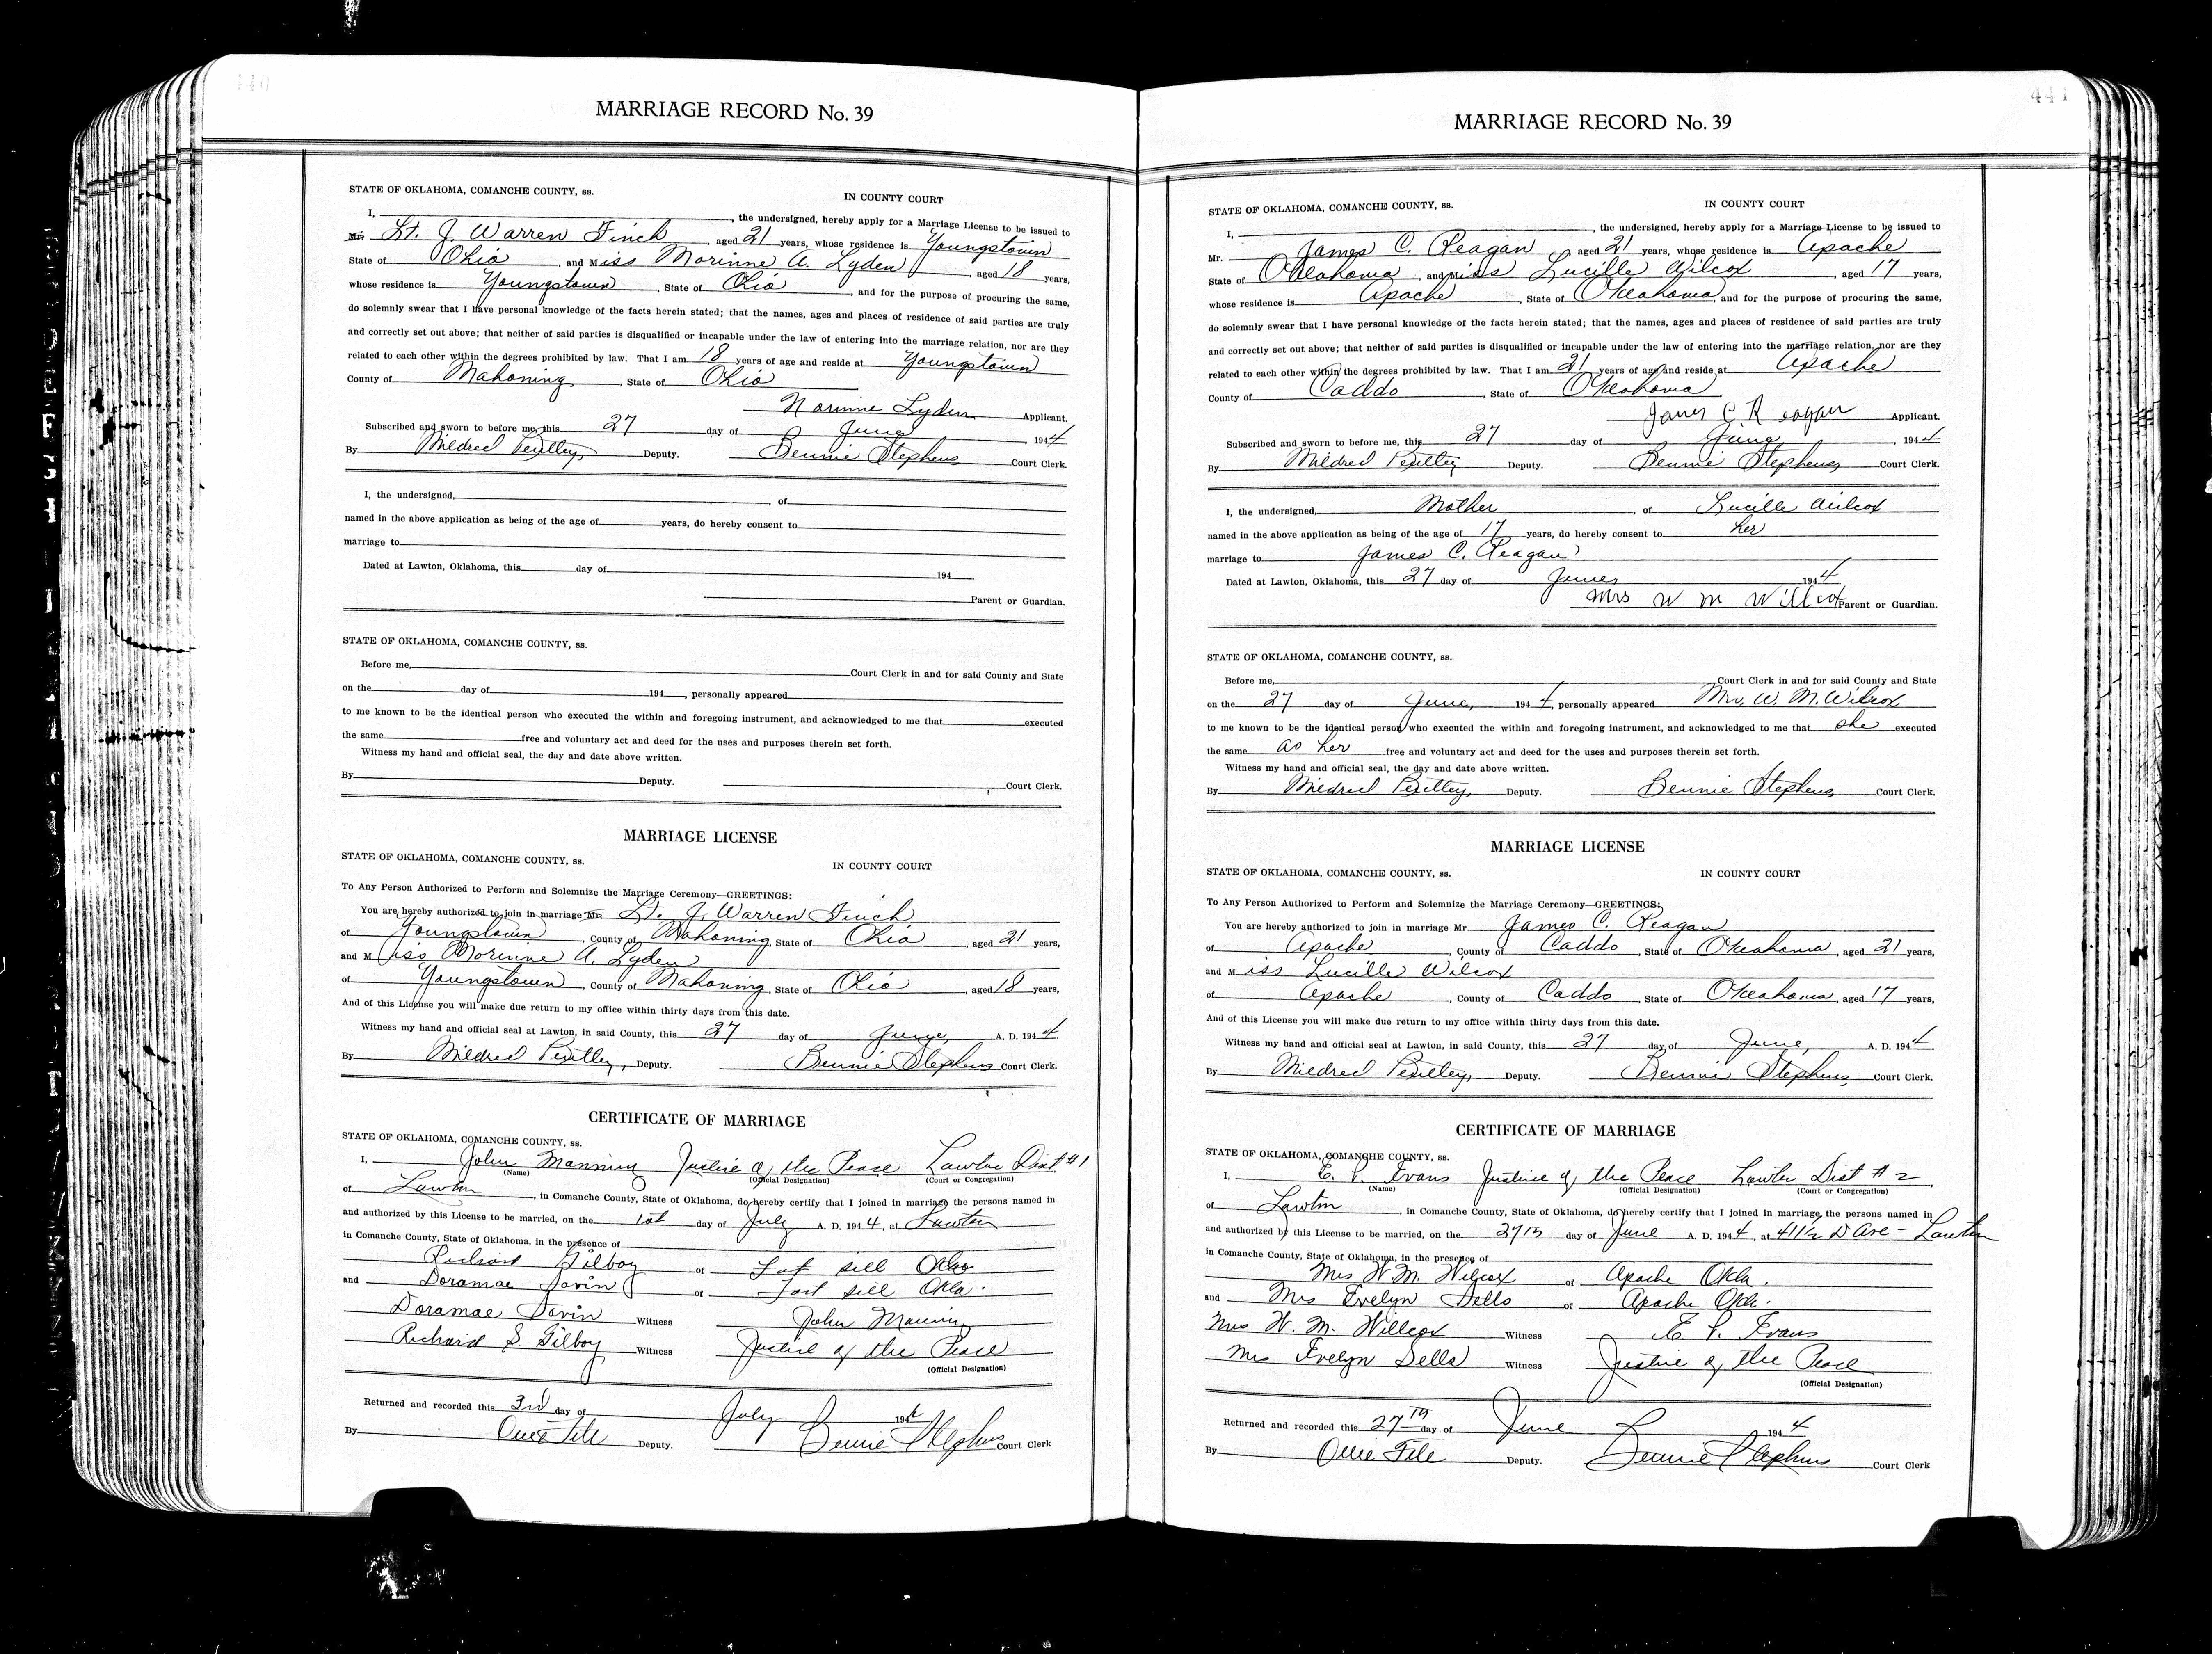 440
MARRIAGE RECORD No. 39
STATE OF OKLAHOMA, COMANCHE COUNTY, ss.
IN COUNTY COURT
I, , the undersigned, hereby apply for a Marriage License to be issued to
Mr. Lt. J. Warren Finch, aged 21 years, whose residence is Youngstown
State of Ohio, and Miss Norinne A. Lyden, aged 18 years,
whose residence is Youngstown, State of Ohio, and for the purpose of procuring the same,
do solemnly swear that I have personal knowledge of the facts herein stated; that the names, ages and places of residence of said parties are truly
and correctly set out above; that neither of said parties is disqualified or incapable under the law of entering into the marriage relation, nor are they
related to each other within the degrees prohibited by law. That I am 18 years of age and reside at Youngstown
County of Mahoning, State of Ohio
Norinne Lyden Applicant.
Subscribed and sworn to before me, this 27 day of June, 1944
By Mildred Deputy. Bennie Stephens Court Clerk.
I, the undersigned, , of
named in the above application as being of the age of years, do hereby consent to
marriage to
Dated at Lawton, Oklahoma, this day of 194
Parent or Guardian.
STATE OF OKLAHOMA, COMANCHE COUNTY, ss.
Before me, Court Clerk in and for said County and State
on the day of 194 , personally appeared
to me known to be the identical person who executed the within and foregoing instrument, and acknowledged to me that executed
the same free and voluntary act and deed for the uses and purposes therein set forth.
Witness my hand and official seal, the day and date above written.
By Deputy. Court Clerk.
MARRIAGE LICENSE
STATE OF OKLAHOMA, COMANCHE COUNTY, ss.
IN COUNTY COURT
To Any Person Authorized to Perform and Solemnize the Marriage Ceremony—GREETINGS:
You are hereby authorized to join in marriage Mr. Lt. J. Warren Finch
of Youngstown, County of Mahoning, State of Ohio, aged 21 years,
and Miss Norinne A. Lyden
of Youngstown, County of Mahoning, State of Ohio, aged 18 years,
And of this License you will make due return to my office within thirty days from this date.
Witness my hand and official seal at Lawton, in said County, this 27 day of June, A. D. 1944
By Mildred , Deputy. Bennie Stephens Court Clerk.
CERTIFICATE OF MARRIAGE
STATE OF OKLAHOMA, COMANCHE COUNTY, ss.
I, John Manning Justice of the Peace Lawton Dist #1
(Name) (Official Designation) (Court or Congregation)
of Lawton, in Comanche County, State of Oklahoma, do hereby certify that I joined in marriage the persons named in
and authorized by this License to be married, on the 1st day of July A. D. 1944, at Lawton
in Comanche County, State of Oklahoma, in the presence of
Richard Gilboy of Fort sill Okla
and Doramae of Fort sill Okla.
Doramae Witness John Manning
Richard S. Gilboy Witness Justice of the Peace
(Official Designation)
Returned and recorded this 3rd day of July 194
By Deputy. Bennie Stephens Court Clerk
441
MARRIAGE RECORD No. 39
STATE OF OKLAHOMA, COMANCHE COUNTY, ss.
IN COUNTY COURT
I, , the undersigned, hereby apply for a Marriage License to be issued to
Mr. James C. Reagan, aged 21 years, whose residence is Apache
State of Oklahoma, and Miss Lucille Wilcox, aged 17 years,
whose residence is Apache, State of Oklahoma, and for the purpose of procuring the same,
do solemnly swear that I have personal knowledge of the facts herein stated; that the names, ages and places of residence of said parties are truly
and correctly set out above; that neither of said parties is disqualified or incapable under the law of entering into the marriage relation, nor are they
related to each other within the degrees prohibited by law. That I am 21 years of age and reside at Apache
County of Caddo, State of Oklahoma
James C Reagan Applicant.
Subscribed and sworn to before me, this 27 day of June, 1944
By Mildred Deputy. Bennie Stephens Court Clerk.
I, the undersigned, Mother, of Lucille Wilcox
named in the above application as being of the age of 17 years, do hereby consent to her
marriage to James C. Reagan
Dated at Lawton, Oklahoma, this 27 day of June 1944
Mrs W m Willcox Parent or Guardian.
STATE OF OKLAHOMA, COMANCHE COUNTY, ss.
Before me, Court Clerk in and for said County and State
on the 27 day of June, 1944, personally appeared Mrs. W. M. Wilcox
to me known to be the identical person who executed the within and foregoing instrument, and acknowledged to me that she executed
the same as her free and voluntary act and deed for the uses and purposes therein set forth.
Witness my hand and official seal, the day and date above written.
By Mildred Deputy. Bennie Stephens Court Clerk.
MARRIAGE LICENSE
STATE OF OKLAHOMA, COMANCHE COUNTY, ss.
IN COUNTY COURT
To Any Person Authorized to Perform and Solemnize the Marriage Ceremony—GREETINGS:
You are hereby authorized to join in marriage Mr James C. Reagan
of Apache, County of Caddo, State of Oklahoma, aged 21 years,
and Miss Lucille Wilcox
of Apache, County of Caddo, State of Oklahoma, aged 17 years,
And of this License you will make due return to my office within thirty days from this date.
Witness my hand and official seal at Lawton, in said County, this 27 day of June, A. D. 1944
By Mildred Deputy. Bennie Stephens Court Clerk.
CERTIFICATE OF MARRIAGE
STATE OF OKLAHOMA, COMANCHE COUNTY, ss.
I, E. L. Evans Justice of the Peace Lawton Dist #2
(Name) (Official Designation) (Court or Congregation)
of Lawton, in Comanche County, State of Oklahoma, do hereby certify that I joined in marriage the persons named in
and authorized by this License to be married, on the 27th day of June A. D. 1944, at 411½ D Ave - Lawton
in Comanche County, State of Oklahoma, in the presence of
Mrs W. M. Wilcox of Apache Okla.
and Mrs Evelyn Sells of Apache Okla.
Mrs W. M. Willcox Witness E. L. Evans
Mrs Evelyn Sells Witness Justice of the Peace
(Official Designation)
Returned and recorded this 27th day of June 1944
By Deputy. Bennie Stephens Court Clerk